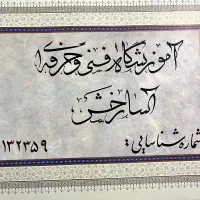 آموزشگاه فنی و حرفه‌ای
آسار خش
شماره شناسایی:
۱۳۲۳۵۹